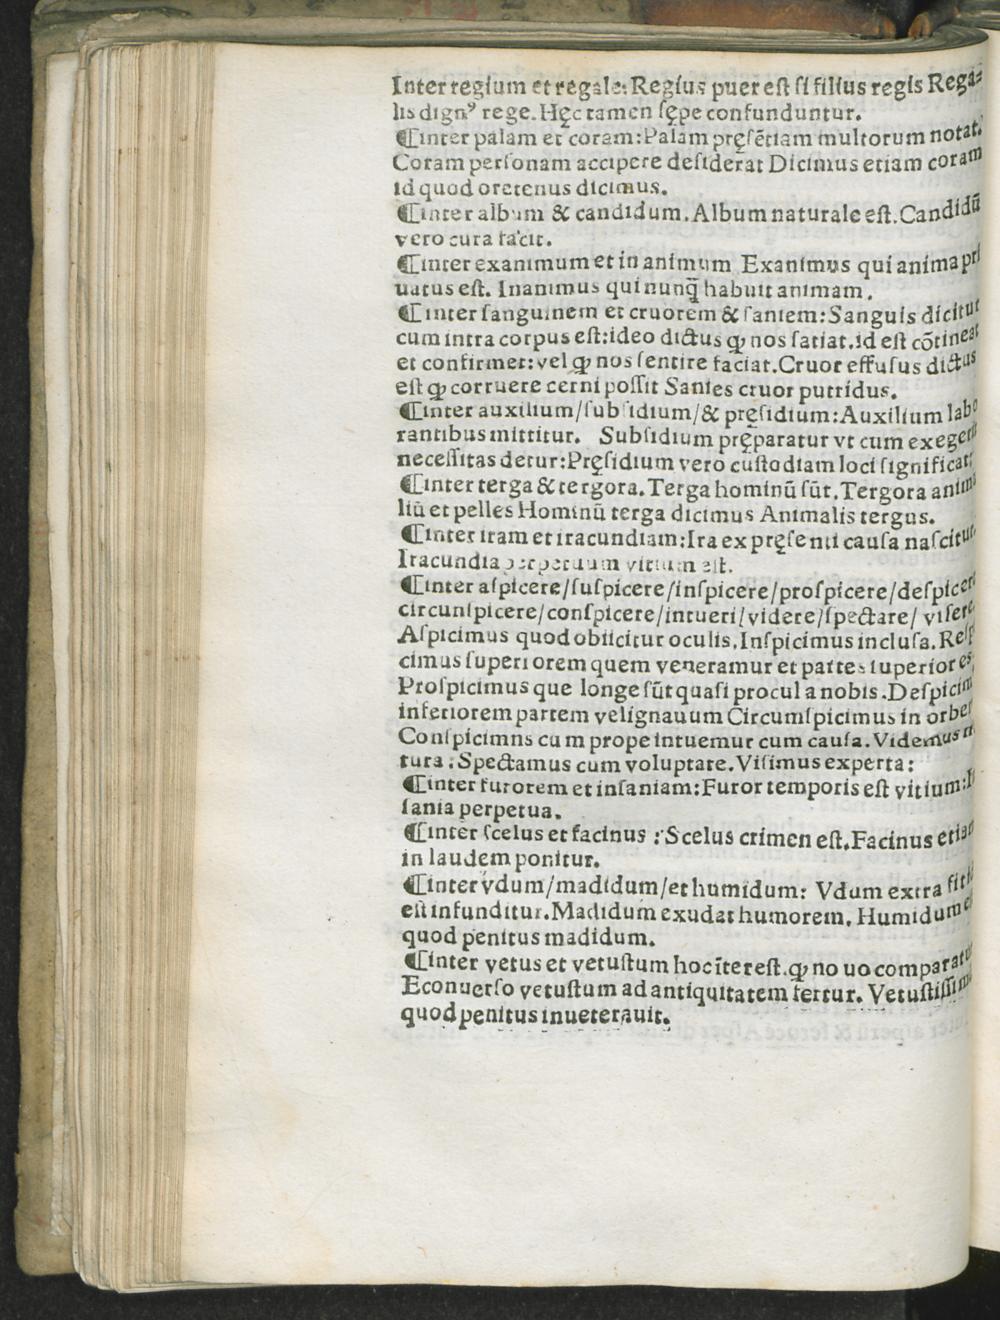 Inter regium et regale: Regius puer est si filius regis Rega⸗
lis dignꝰ rege. Hęc tamen sępe confunduntur.
¶inter palam et coram: Palam pręsẽtiam multorum notat.
Coram personam accipere desiderat Dicimus etiam coram
id quod oretenus dicimus.
¶inter album & candidum. Album naturale est. Candidũ
vero cura facit.
¶inter exanimum et in animum Exanimus qui anima pri
uatus est. Inanimus qui nunq̃ habuit animam.
¶inter sanguinem et cruorem & saniem: Sanguis dicitur
cum intra corpus est: ideo dictus ꝙ nos satiat. id est cõtineat
et confirmet: vel ꝙ nos sentire faciat. Cruor effusus dictus
est ꝙ corruere cerni possit Sanies cruor putridus.
¶inter auxilium/subsidium/& pręsidium: Auxilium labo
rantibus mittitur. Subsidium pręparatur vt cum exegerit
necessitas detur: Pręsidium vero custodiam loci significat:
¶inter terga & tergora. Terga hominũ sũt. Tergora anima
liũ et pelles Hominũ terga dicimus Animalis tergus.
¶inter iram et iracundiam: Ira ex pręsenti causa nascitur.
Iracundia perpetuum vitium est.
¶inter aspicere/suspicere/inspicere/prospicere/despicere
circunspicere/conspicere/intueri/videre/spectare/ visere.
Aspicimus quod obiicitur oculis. Inspicimus inclusa. Resp
cimus superi orem quem veneramur et partes superiores.
Prospicimus que longe sũt quasi procul a nobis. Despicim
inferiorem partem vel ignauum Circumspicimus in orbem
Conspicimns cu m prope intuemur cum causa. Videmus
tura: Spectamus cum voluptate. Visimus experta:
¶inter furorem et insaniam: Furor temporis est vitium: I
sania perpetua.
¶inter scelus et facinus : Scelus crimen est. Facinus etiam
in laudem ponitur.
¶inter vdum/madidum/et humidum: Vdum extra
est infunditur. Madidum exudat humorem. Humidum e
quod penitus madidum.
¶inter vetus et vetustum hoc ĩterest. ꝙ no uo comparatur
Econuerso vetustum ad antiquitatem fertur. Vetustissim
quod penitus inueterauit.